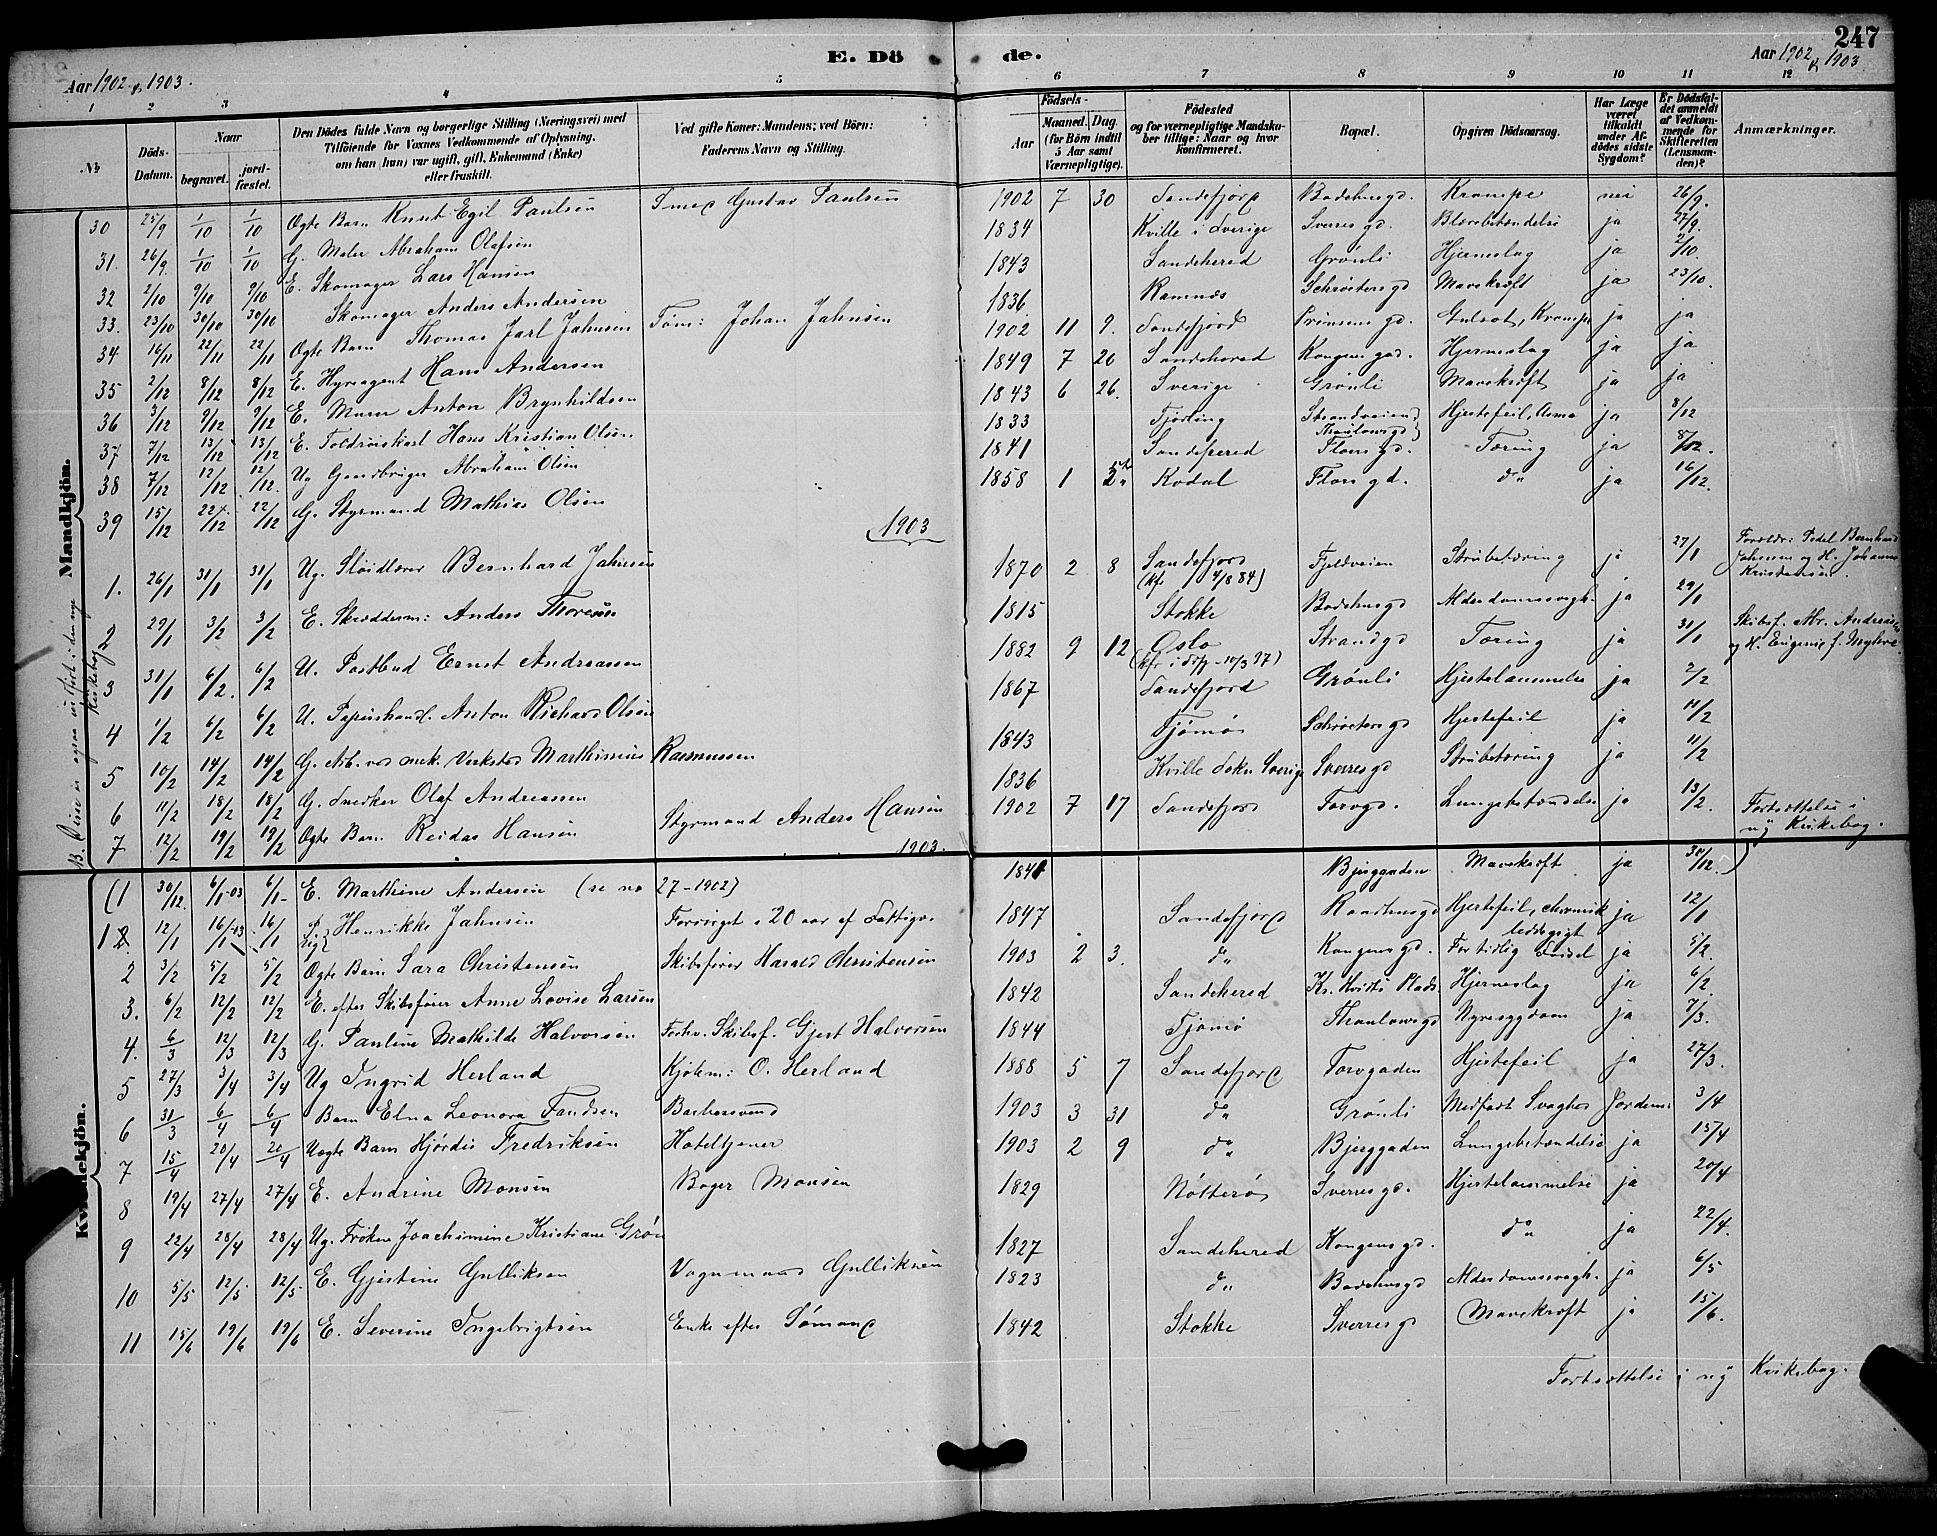 247
E. Döde.
Aar 1902 & 1903.
Aar 1902 & 1903
1 2 3 4 5 6 7 8 9 10 11 12
№
Döds-Datum.
Naar
begravet.
jordfæstet.
Den Dödes fulde Navn og borgerlige Stilling (Næringsvei) med Tilföiende for Voxnes Vedkommende af Oplysning, om han (hun) var ugift, gift, Enkemand (Enke) eller fraskilt.
Ved gifte Koner: Mandens; ved Börn: Faderens Navn og Stilling.
Födsels-
Aar
Maaned. Dag.
(for Börn indtil 5 Aar samt Værnepligtige).
Födested og for værnepligtige Mandskaber tillige: Naar og hvor konfirmeret.
Bopæl.
Opgiven Dödsaarsag.
Har Læge været tilkaldt under Afdödes sidste Sygdom?
Er Dödsfaldet anmeldt af Vedkommende for Skifteretten (Lensmanden)?
Anmærkninger.
Mandkjön.
30 25/9 1/10 1/10 Ægte Barn Knut Egil Paulsen Smed Gustav Paulsen 1902 7 30 Sandefjord Badehusgd. Krampe nei 26/9.
31. 26/9 1/10 1/10 G. Maler Abraham Olafsen 1834 Kville i Sverige Sverresgd. Blærebetændelse ja 27/9.
32 2/10 9/10 9/10 E. Skomager Lars Hansen 1843 Sandeherred Grönli Hjerneslag ja 2/10.
33. 23/10 30/10 30/10 Skomager Anders Andersen 1836 Ramnes Schröetersgd Mavekræft ja 23/10.
34 16/11 22/11 22/11 Ægte Barn Thomas Jarl Jahnsen Töm: Johan Jahnsen 1902 11 9. Sandefjord Prinsensgd. Gulsot, Krampe ja ja
35 2/12 8/12 8/12 E. Hyreagent Hans Andersen 1849 7 20 Sandeherred Kongensgad. Hjerneslag ja ja
36 3/12 9/12 9/12 E. Murer Anton Brynhildsen 1843 6 26. Sverige Grönli Mavekræft ja ja
37 7/12 13/12 13/12 E. Toldrorskarl Hans Kristian Olsen 1833 Tjölling Strandveien Thaulowsgd Hjertefeil, Asma ja 8/12
38 7/12 12/12 12/12. Ug Gaardbruger Abraham Olsen 1841 Sandeherred Floersgd. Tæring ja 8/12.
39 15/12 22/12 22/12 G. Styrmand Mathias Olsen 1858 1 Kodal Floersgd. do ja 16/12.
1903
1. 26/1 31/1 31/1 Ug. Slöidlærer Bernhard Jahnsen 1870 2 8 Sandefjord (kfr 4/8 84) Fjeldveien Strubetæring ja 27/1 Forældr: Pedel Bernhard Jahnsen og H. Johanne Kristensen.
2 29/1 3/2 3/2 E. Skræderm: Anders Thoresen 1815 Stokke Badehusgd Alderdomssvagh. ja 29/1
3 31/1 6/2. 6/2 U. Postbud Ernst Andreassen 1882 9 12 Oslo Strandgd Tæring ja 31/1 Skibsf. Abr. Andreassen og H. Eugenie f. Myhre.
4 1/2 6/2 6/2 U. Papirhandl. Anton Richard Olsen 1867 Sandefjord Grönli Hjertelammelse ja 2/2
5 10/2 14/2 14/2 G. Arb. ved mek. Verksted Marthinius Rasmussen 1843 Tjömö Schröetersgd Hjertefeil ja 11/2
6 11/2 18/2 18/2 G. Snedker Olaf Andreassen 1836 Kville Sogn Sverige Sverresgd Strubetæring ja 11/2
7 12/2 19/2 19/2 Ægte Barn Reidar Hansen Styrmand Anders Hansen 1902 7 17 Sandefjord Torvgd. Lungebetændelse ja 13/2. Fortsættelse i ny Kirkebog.
1903.
Kvindekjön.
(1 30/12. 6/1-03 6/1- E. Marthine Andersen (se no 27-1902) 1841 Bjerggaden Mavekræft ja 30/12.
1 12/1 16/1-03 16/1 Henrikke Jahnsen Forsörget i 20 aar af Fattigv. 1847 Sandefjord Raastensgd Hjertefeil, chronisk leddegigt ja 12/1
2 3/2 5/2 5/2 Ægte Barn Sara Christensen Skibsförer Harald Christensen 1903 2 3. do Kongensgd. For tidlig Födsel ja 5/2.
3. 6/2 12/2 12/2 E. efter Skibsförer Anne Lovise Larsen 1842 Sandeherred Kr. Hvitts Plads. Hjerneslag ja 6/2.
4. 6/3 12/3 12/3 G. Pauline Mathilde Halvorsen Forhv. Skibsf. Gjert Halvorsen 1844 Tjömö Thaulowsgd Nyresygdom ja 7/3.
5 27/3 3/4 3/4 Ug Ingrid Herland Kjöbm: O. Herland 1888 5 7 Sandefjord Torvgaden Hjertefeil ja 27/3.
6 31/3 6/4 6/4 Barn Elna Leonora Fandsen Barbersvend 1903 3 31 do Grönli Medfödt Svaghed Jordem: 3/4
7 15/4 20/4 20/4 Uægte Barn Hjördis Fredriksen Hoteltjener 1903 2 9 do Bjerggaden Lungebetændelse ja 15/4
8 19/4 27/4 27/4 E. Andrine Monsen Bager Monsen 1829 Nötterö Sverresgd. Hjertelammelse ja 20/4
9 22/4 28/4 28/4 Ug. Fröken Joachimine Kristiane Grön 1827 Sandeherred Kongensgd. do ja 22/4.
10 5/5 12/5 12/5 E. Gjestine Gulliksen Vognmand Gulliksen 1823 do Badehusgd Alderdomssvagh. ja 6/5
11 15/6 19/6 19/6 E. Severine Ingebrigtsen Enke efter Sömand 1842 Stokke Sverresgd Mavekræft ja 15/6.
Fortsættelse i ny Kirkebog.